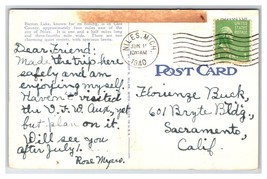 Barron Lake, known for its fishing, is in Cass
County, approximately four miles east of the
city of Niles. It is one and a half miles long
and three-fourths mile wide. There are many
charming pavilions, with spacious lawns.
NILES, MICH.
JUN 11
10 AM
1940
POST CARD
Dear Friend:
Made the trip here
safely and am
enjoying myself.
Haven't visited
the V.F.W. Aux. yet
but plan on it.
Will see you
after July 1.
Rose Myers.
Florienze Buck,
601 Bryte Bldg,
Sacramento,
Calif.